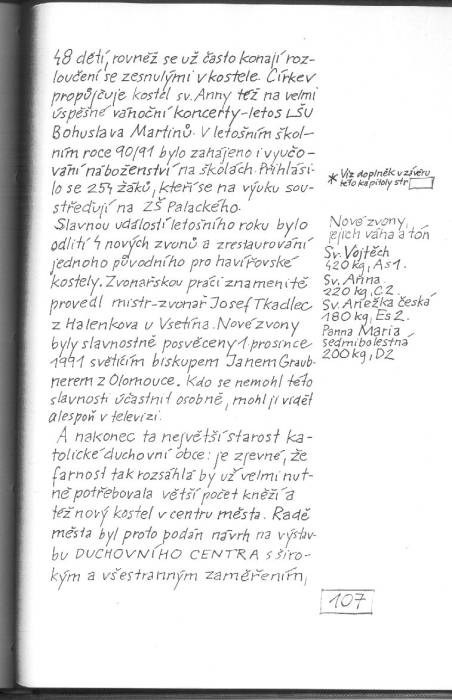 48 dětí, rovněž se už často konají roz-
loučení se zesnulými v kostele. Církev
propůjčuje kostel sv. Anny též na velmi
úspěšné vánoční koncerty-letos LŠU
Bohuslava Martinů. V letošním škol-
ním roce 90/91 bylo zahájeno i vyučo-
vání náboženství na školách. Přihlási-
lo se 254 žáků, kteří se na výuku sou-
středují na ZŠ Palackého.
Slavnou událostí letošního roku bylo
odlití 4 nových zvonů a zrestaurování
jednoho původního pro havířovské
kostely. Zvonařskou práci znamenitě
provedl mistr-zvonař Josef Tkadlec
z Halenkova u Vsetína. Nové zvony
byly slavnostně posvěceny 1. prosince
1991 světícím biskupem Janem Graub-
nerem z Olomouce. Kdo se nemohl této
slavnosti účastnit osobně, mohl ji vidět
alespoň v televizi.
A nakonec ta největší starost ka-
tolické duchovní obce: je zjevné, že
farnost tak rozsáhlá by už velmi nut-
ně potřebovala větší počet kněží a
též nový kostel v centru města. Radě
města byl proto podán návrh na výstav-
bu DUCHOVNÍHO CENTRA s širo-
kým a všestranným zaměřením,
* Viz doplněk v závěru
této kapitoly str
Nové zvony,
jejich váha a tón
Sv. Vojtěch
420 kg, As1.
Sv. Anna
220 kg, C2.
Sv. Anežka česká
180 kg, Es2.
Panna Maria
sedmibolestná
200 kg, D2
107